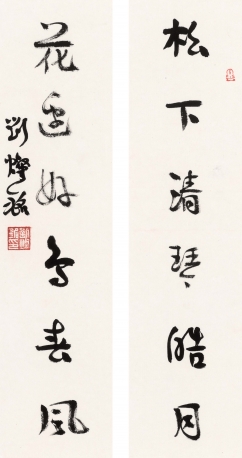 松下清琴皓月
花边好鸟春风
刘灿铭